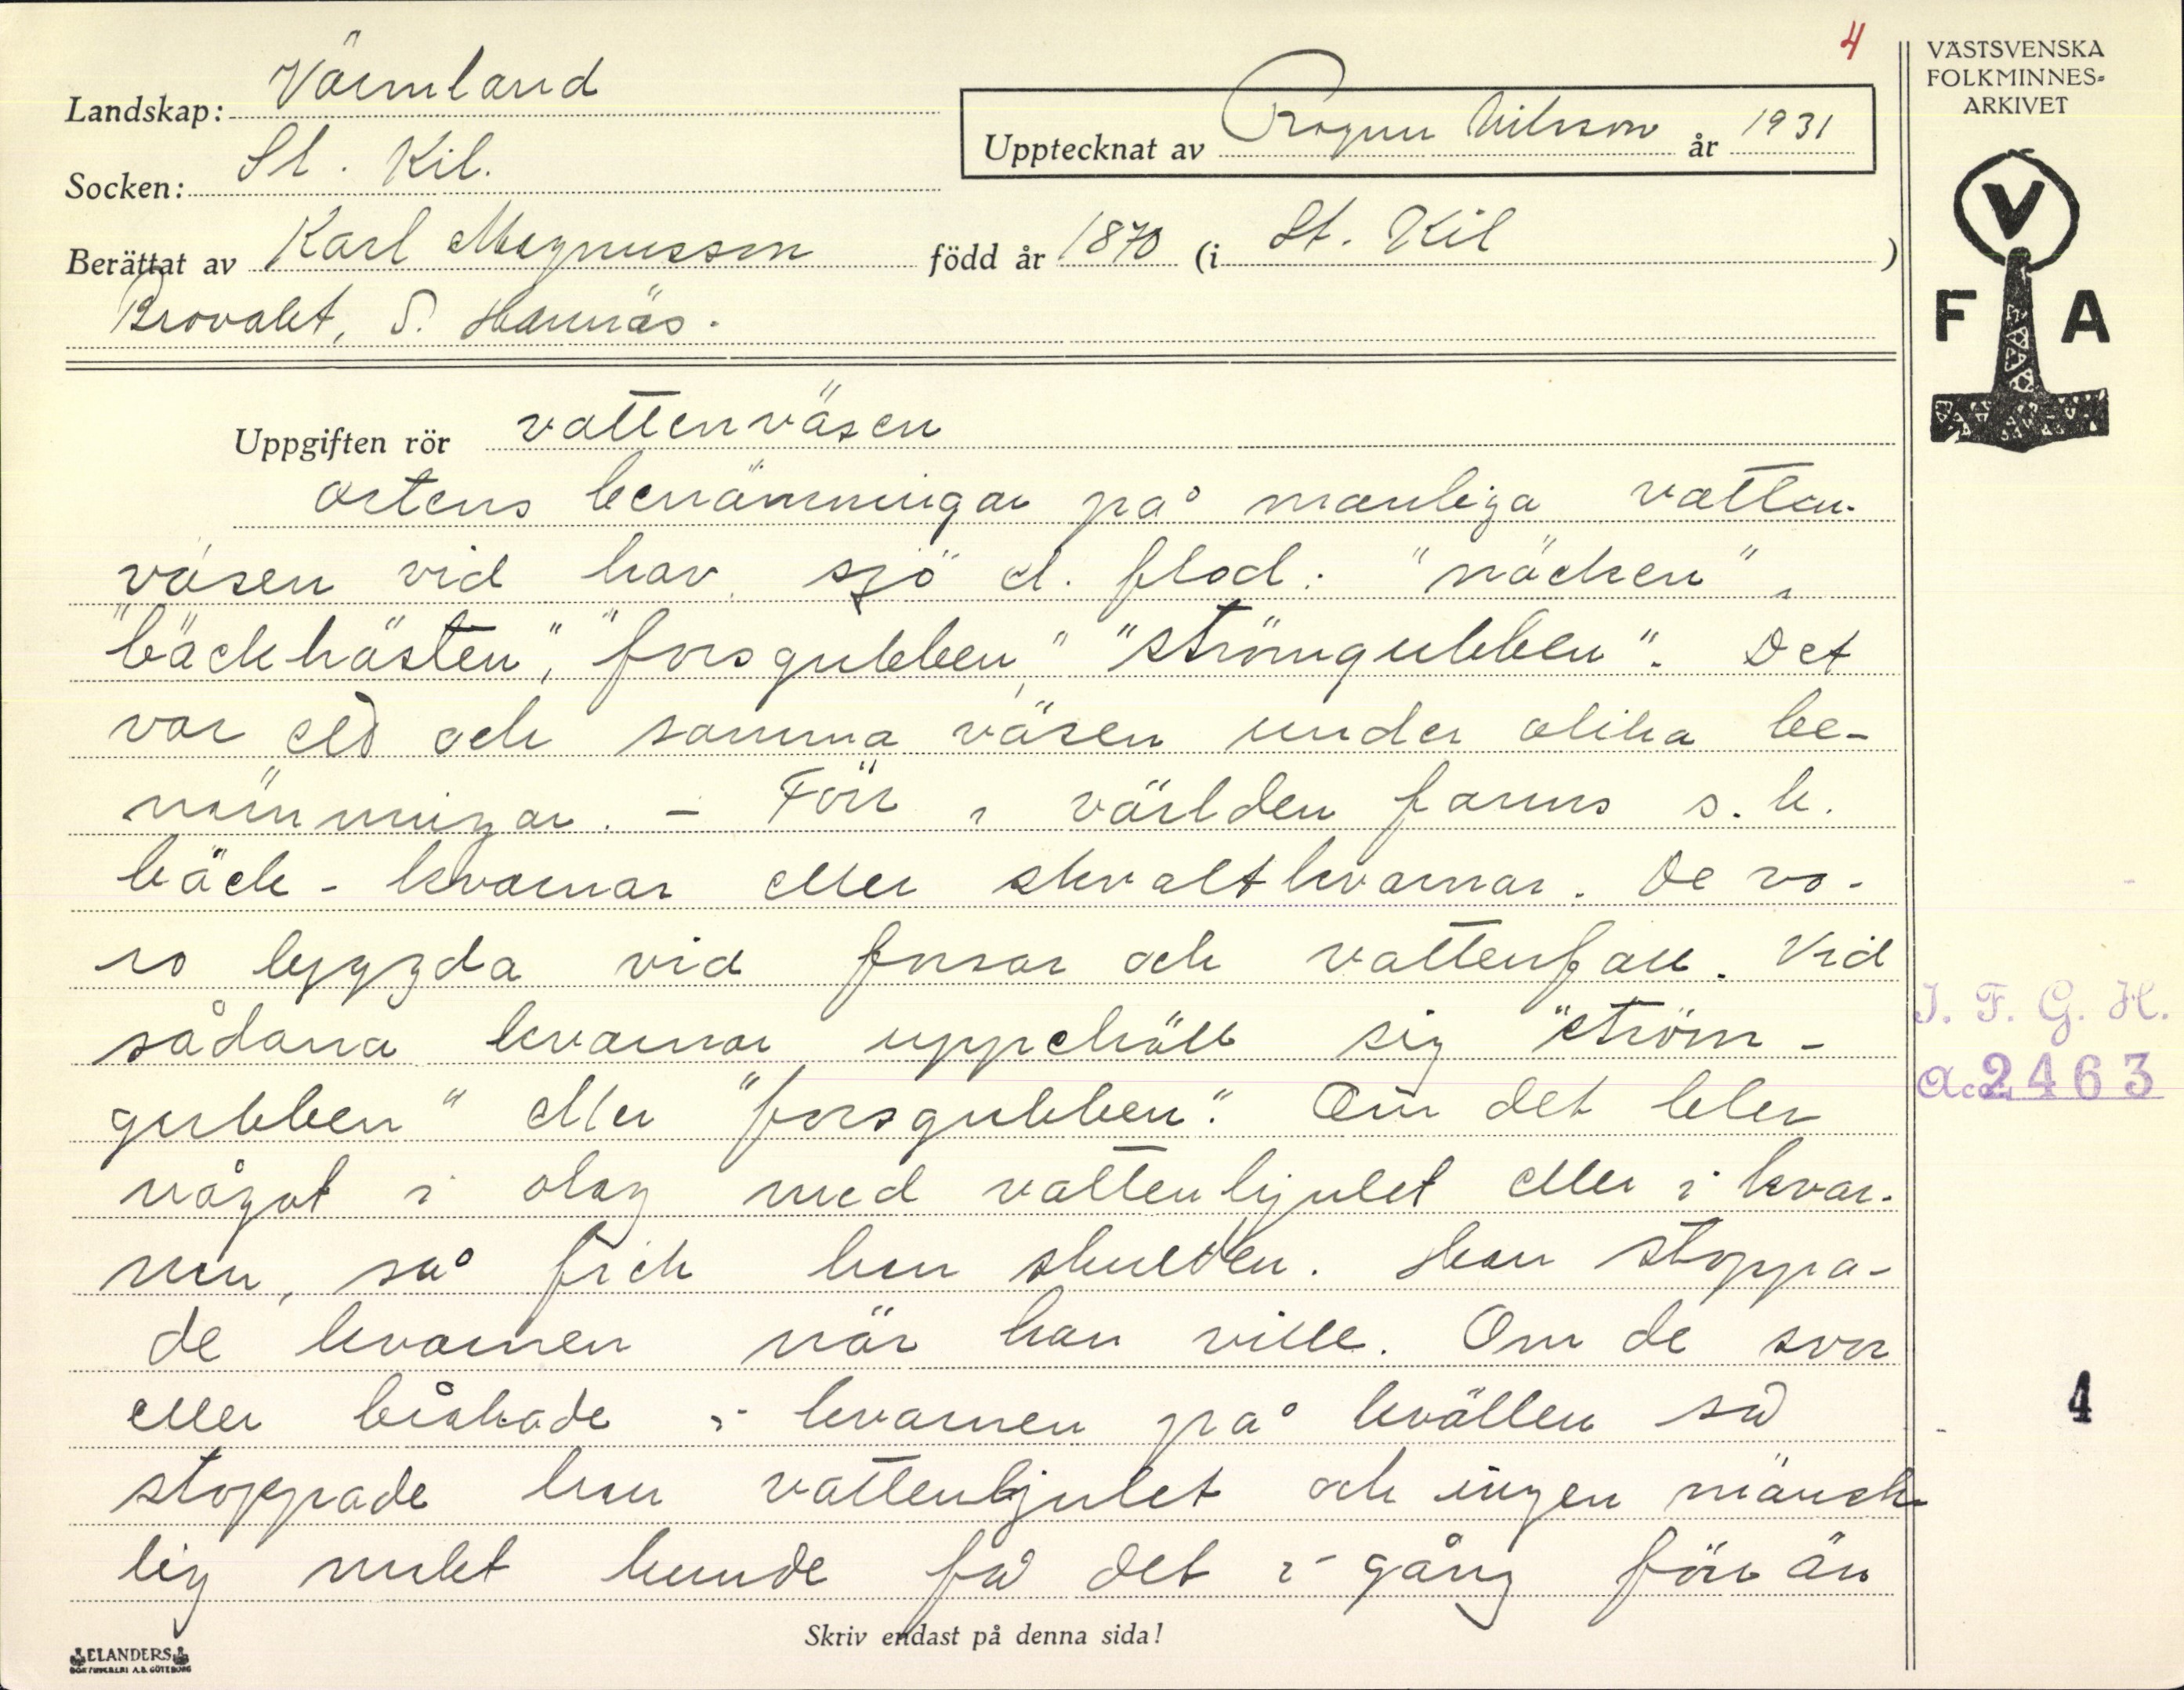 4
VÄSTSVENSKA
FOLKMINNES-
ARKIVET
Landskap: Värmland
Upptecknat av Ragnar Nilsson år 1931
Socken: St. Kil.
Berättat av Karl Magnusson född år 1870 (i St. Kil)
Brovalet, S. Hannäs.
V
F A
Uppgiften rör vattenväsen
ortens benämningar på manliga vatten-
väsen vid hav, sjö el. flod: "näcken",
"bäckhästen", "forsgubben," "strömgubben". Det
var ett och samma väsen under olika be-
nämningar. - Förr i världen fanns s.k.
bäck-kvarnar eller skvaltkvarnar. De vo-
ro byggda vid forsar och vattenfall. Vid
sådana kvarnar uppehöll sig "ström-
gubben" eller "forsgubben". Om det blev
något i olag med vattenhjulet eller i kvar-
nen, så fick han skulden. Han stoppa-
de kvarnen när han ville. Om de svor
eller bråkade i kvarnen på kvällen så
stoppade han vattenhjulet och ingen mänsk-
lig makt kunde få det i gång förr än
I. F. G. H.
Acc. 2463
4
Skriv endast på denna sida!
ELANDERS
BOKTRYCKERI A.B. GÖTEBORG